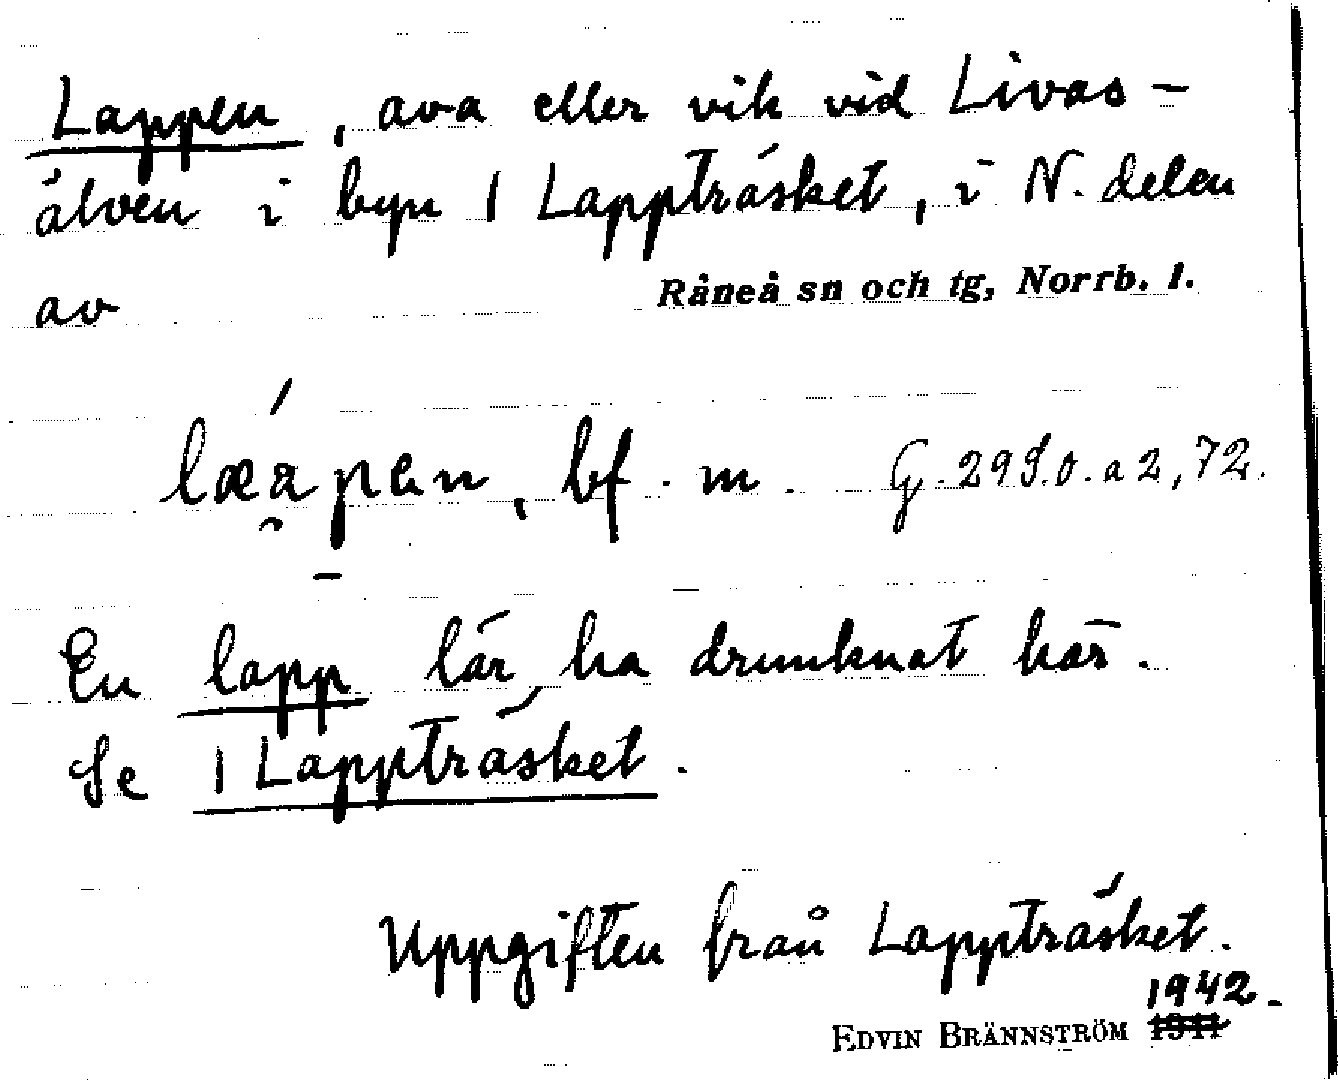 Lappen, ava eller vik vid Livas-
älven i byn 1 Lappträsket, i N. delen
av Råneå sn och tg, Norrb. l.
læapen, bf. m. G. 295.o.a2,72.
En lapp lär ha drunknat här.
Se 1 Lappträsket.
Uppgiften från Lappträsket.
1942.
EDVIN BRÄNNSTRÖM 1941